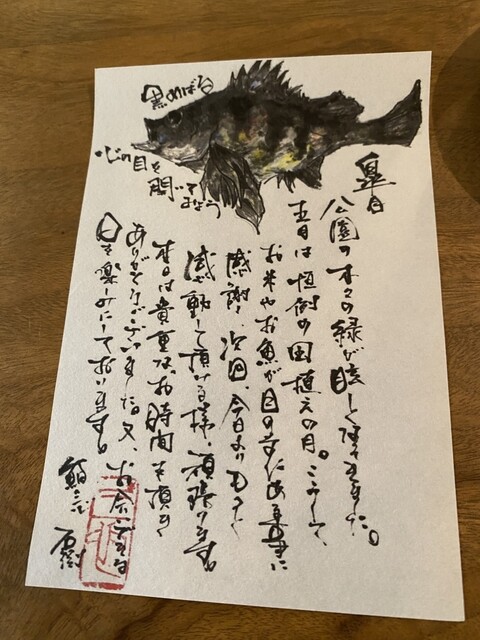 黒めばる
心の目を
開いて
みよう
皐月
公園の木々の緑が眩しくなってきました。
五月は恒例の田植えの月。こうして、
お米やお魚が目の前にある事に
感謝し、次回、今日よりもっと
感動して頂ける様、頑張ります。
本日は貴重な、お時間を頂き
ありがとうございました。又、お会いできる
日を楽しみにしております。
鮨